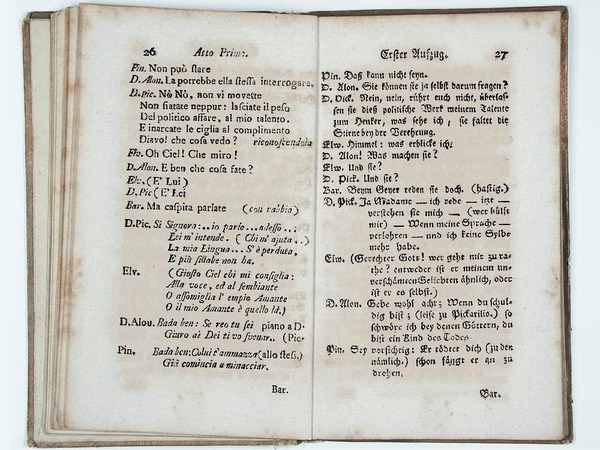 26 Atto Primo.
Pin. Non può stare
D. Alon. La potrebbe ella stessa interrogare,
D. pic. Nò Nò, non vi movette
Non fiatate neppur: lasciate il peso
Del politico affare, al mio talento.
E inarcate le ciglia al complimento
Diavol che cosa vedo? riconoscendola
Elv. Oh Ciel! Che miro!
D. Alon. E ben che cosa fate?
Elv. (E' Lui)
D. Pic (E' Lei
Bar. Ma caspita parlate (con rabbia)
D. Pic. Si Signora:..io parlo...adesso..:
Lei m'intende. (Chi m'ajuta..)
La mia Lingua... S'è perduta,
E più sillabe non ha.
Elv. (Giusto Ciel chi mi consiglia:
Alla voce, ed al sembiante
O assomiglia l'empio Amante
O il mio Amante è quello là.)
D. Alou. Bada ben: Se reo tu sei piano a D.
Giuro ai Dei ti vo svenar. (Pic.
Pin. Bada ben: Colui t'ammazza (allo stess.)
Già comincia a minacciar.
Bar.
Erster Aufzug. 27
Pin. Daß kann nicht seyn.
D. Alon. Sie können sie ja selbst darum fragen?
D. Pick. Nein, nein, rührt euch nicht, überlas-
sen sie dieß politische Werk meinem Talente
zum Henker, was sehe ich, sie faltet die
Stirne bey der Verehrung.
Elw. Himmel: was erblicke ich;
D. Alon! Was machen sie?
Elw. Und sie?
D. Pick. Und sie?
Bar. Beym Geyer reden sie doch. (hastig.)
D. Pick. Ja Madame — ich rede — itzt —
verstehen sie mich — (wer hülft
mir) — Wenn meine Sprache —
verlohren — und ich keine Sylbe
mehr habe.
Elw. (Gerechter Gott! wer geht mir zu ra-
the? entweder ist er meinem un-
verschämten Geliebten ähnlich, oder
ist er es selbst.)
D. Alon. Gebe wohl acht; Wenn du schul-
dig bist; (leise zu Pickarilio.) so
schwöre ich bey denen Göttern, du
bist ein Kind des Todes.
Pin. Sey vorsichtig: Er tödtet dich (zu den
nämlich.) schon fängt er an zu
drohen.
Bar.